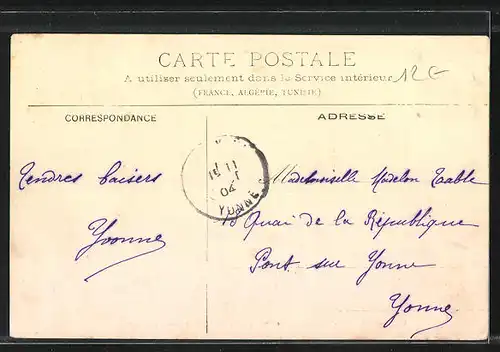 CARTE POSTALE
A utiliser seulement dans le Service intérieur
(FRANCE, ALGÉRIE, TUNISIE)
12 €
CORRESPONDANCE
ADRESSE
Tendres baisers
Yvonne
11
04
YONNE
Mademoiselle Madelon
10 Quai de la République
Pont sur Yonne
Yonne